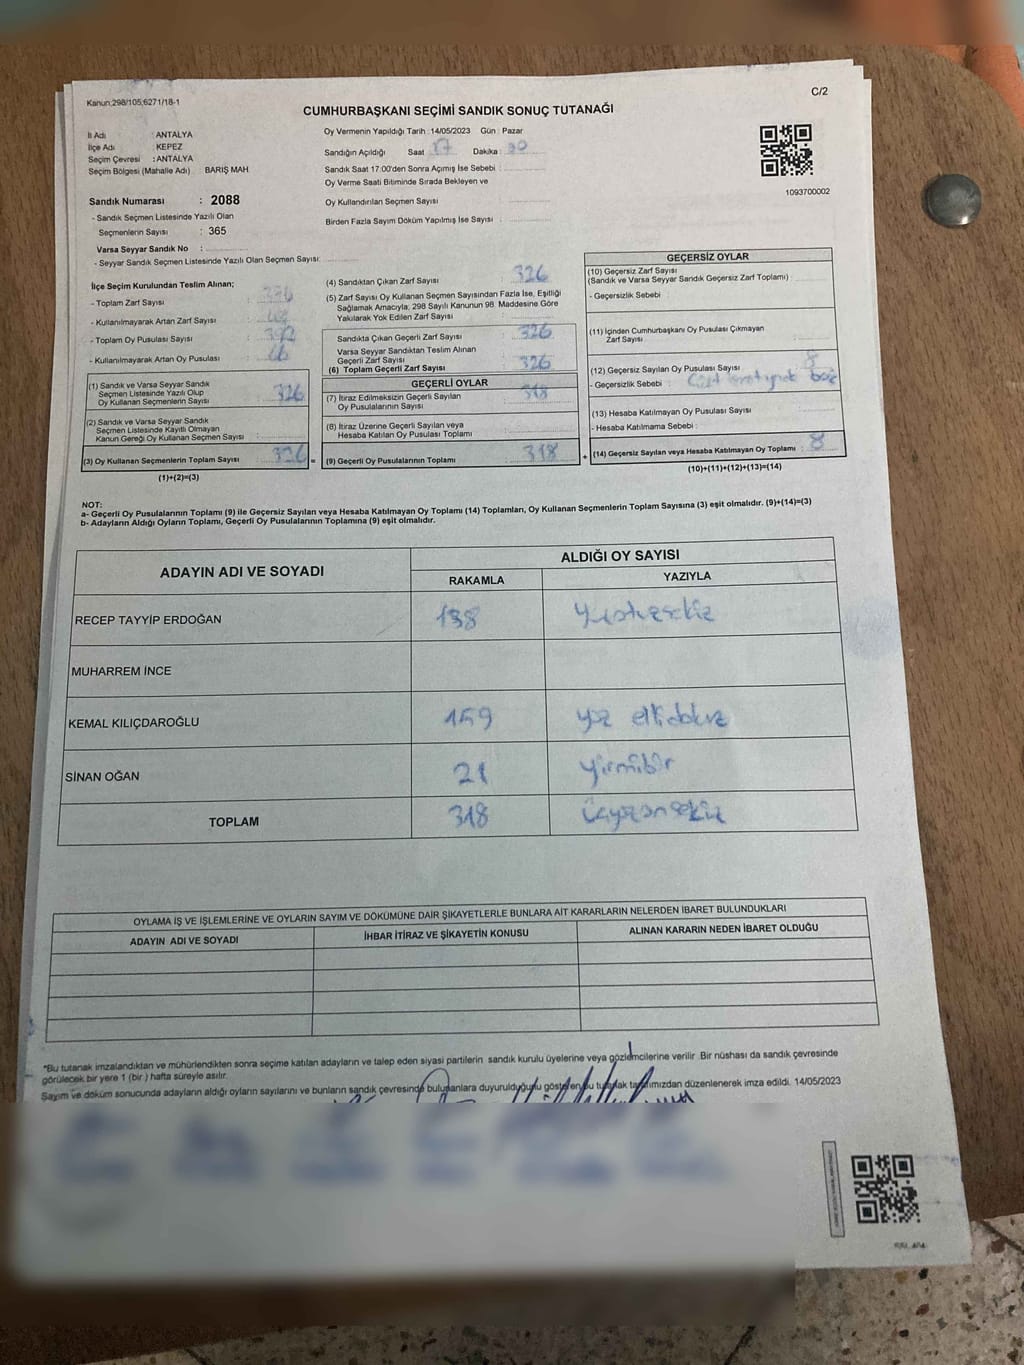 Kanun;298/105;6271/18-1
C/2
CUMHURBAŞKANI SEÇİMİ SANDIK SONUÇ TUTANAĞI
İl Adı : ANTALYA
İlçe Adı : KEPEZ
Seçim Çevresi : ANTALYA
Seçim Bölgesi (Mahalle Adı) : BARIŞ MAH
Sandık Numarası : 2088
- Sandık Seçmen Listesinde Yazılı Olan
Seçmenlerin Sayısı : 365
Varsa Seyyar Sandık No :
- Seyyar Sandık Seçmen Listesinde Yazılı Olan Seçmen Sayısı:
Oy Vermenin Yapıldığı Tarih : 14/05/2023 Gün : Pazar
Sandığın Açıldığı Saat 17 Dakika :
Sandık Saat 17:00'den Sonra Açımış İse Sebebi :
Oy Verme Saati Bitiminde Sırada Bekleyen ve
Oy Kullandırılan Seçmen Sayısı :
Birden Fazla Sayım Döküm Yapılmış İse Sayısı :
1093700002
İlçe Seçim Kurulundan Teslim Alınan;
- Toplam Zarf Sayısı :
- Kullanılmayarak Artan Zarf Sayısı :
- Toplam Oy Pusulası Sayısı :
- Kullanılmayarak Artan Oy Pusulası :
(1) Sandık ve Varsa Seyyar Sandık
Seçmen Listesinde Yazılı Olup
Oy Kullanan Seçmenlerin Sayısı : 326
(2) Sandık ve Varsa Seyyar Sandık
Seçmen Listesinde Kayıtlı Olmayan
Kanun Gereği Oy Kullanan Seçmen Sayısı :
(3) Oy Kullanan Seçmenlerin Toplam Sayısı : 326 =
(1)+(2)=(3)
(4) Sandıktan Çıkan Zarf Sayısı : 326
(5) Zarf Sayısı Oy Kullanan Seçmen Sayısından Fazla İse, Eşitliği
Sağlamak Amacıyla; 298 Sayılı Kanunun 98. Maddesine Göre
Yakılarak Yok Edilen Zarf Sayısı :
Sandıkta Çıkan Geçerli Zarf Sayısı : 326
Varsa Seyyar Sandıktan Teslim Alınan
Geçerli Zarf Sayısı :
(6) Toplam Geçerli Zarf Sayısı : 326
GEÇERLİ OYLAR
(7) İtiraz Edilmeksizin Geçerli Sayılan
Oy Pusulalarının Sayısı : 318
(8) İtiraz Üzerine Geçerli Sayılan veya
Hesaba Katılan Oy Pusulası Toplamı :
(9) Geçerli Oy Pusulalarının Toplamı : 318 +
GEÇERSİZ OYLAR
(10) Geçersiz Zarf Sayısı
(Sandık ve Varsa Seyyar Sandık Geçersiz Zarf Toplamı) :
- Geçersizlik Sebebi :
(11) İçinden Cumhurbaşkanı Oy Pusulası Çıkmayan
Zarf Sayısı :
(12) Geçersiz Sayılan Oy Pusulası Sayısı : 8
- Geçersizlik Sebebi :
(13) Hesaba Katılmayan Oy Pusulası Sayısı :
- Hesaba Katılmama Sebebi :
(14) Geçersiz Sayılan veya Hesaba Katılmayan Oy Toplamı : 8
(10)+(11)+(12)+(13)=(14)
NOT:
a- Geçerli Oy Pusulalarının Toplamı (9) ile Geçersiz Sayılan veya Hesaba Katılmayan Oy Toplamı (14) Toplamları, Oy Kullanan Seçmenlerin Toplam Sayısına (3) eşit olmalıdır. (9)+(14)=(3)
b- Adayların Aldığı Oyların Toplamı, Geçerli Oy Pusulalarının Toplamına (9) eşit olmalıdır.
ADAYIN ADI VE SOYADI
ALDIĞI OY SAYISI
RAKAMLA YAZIYLA
RECEP TAYYİP ERDOĞAN 138
MUHARREM İNCE
KEMAL KILIÇDAROĞLU 159 yüz ellidokuz
SİNAN OĞAN 21 yirmibir
TOPLAM 318 üçyüzonsekiz
OYLAMA İŞ VE İŞLEMLERİNE VE OYLARIN SAYIM VE DÖKÜMÜNE DAİR ŞİKAYETLERLE BUNLARA AİT KARARLARIN NELERDEN İBARET BULUNDUKLARI
ADAYIN ADI VE SOYADI İHBAR İTİRAZ VE ŞİKAYETİN KONUSU ALINAN KARARIN NEDEN İBARET OLDUĞU
*Bu tutanak imzalandıktan ve mühürlendikten sonra seçime katılan adayların ve talep eden siyasi partilerin sandık kurulu üyelerine veya gözlemcilerine verilir. Bir nüshası da sandık çevresinde
görülecek bir yere 1 (bir ) hafta süreyle asılır.
Sayım ve döküm sonucunda adayların aldığı oyların sayılarını ve bunların sandık çevresinde bulunanlara duyurulduğunu gösteren bu tutanak tarafımızdan düzenlenerek imza edildi. 14/05/2023